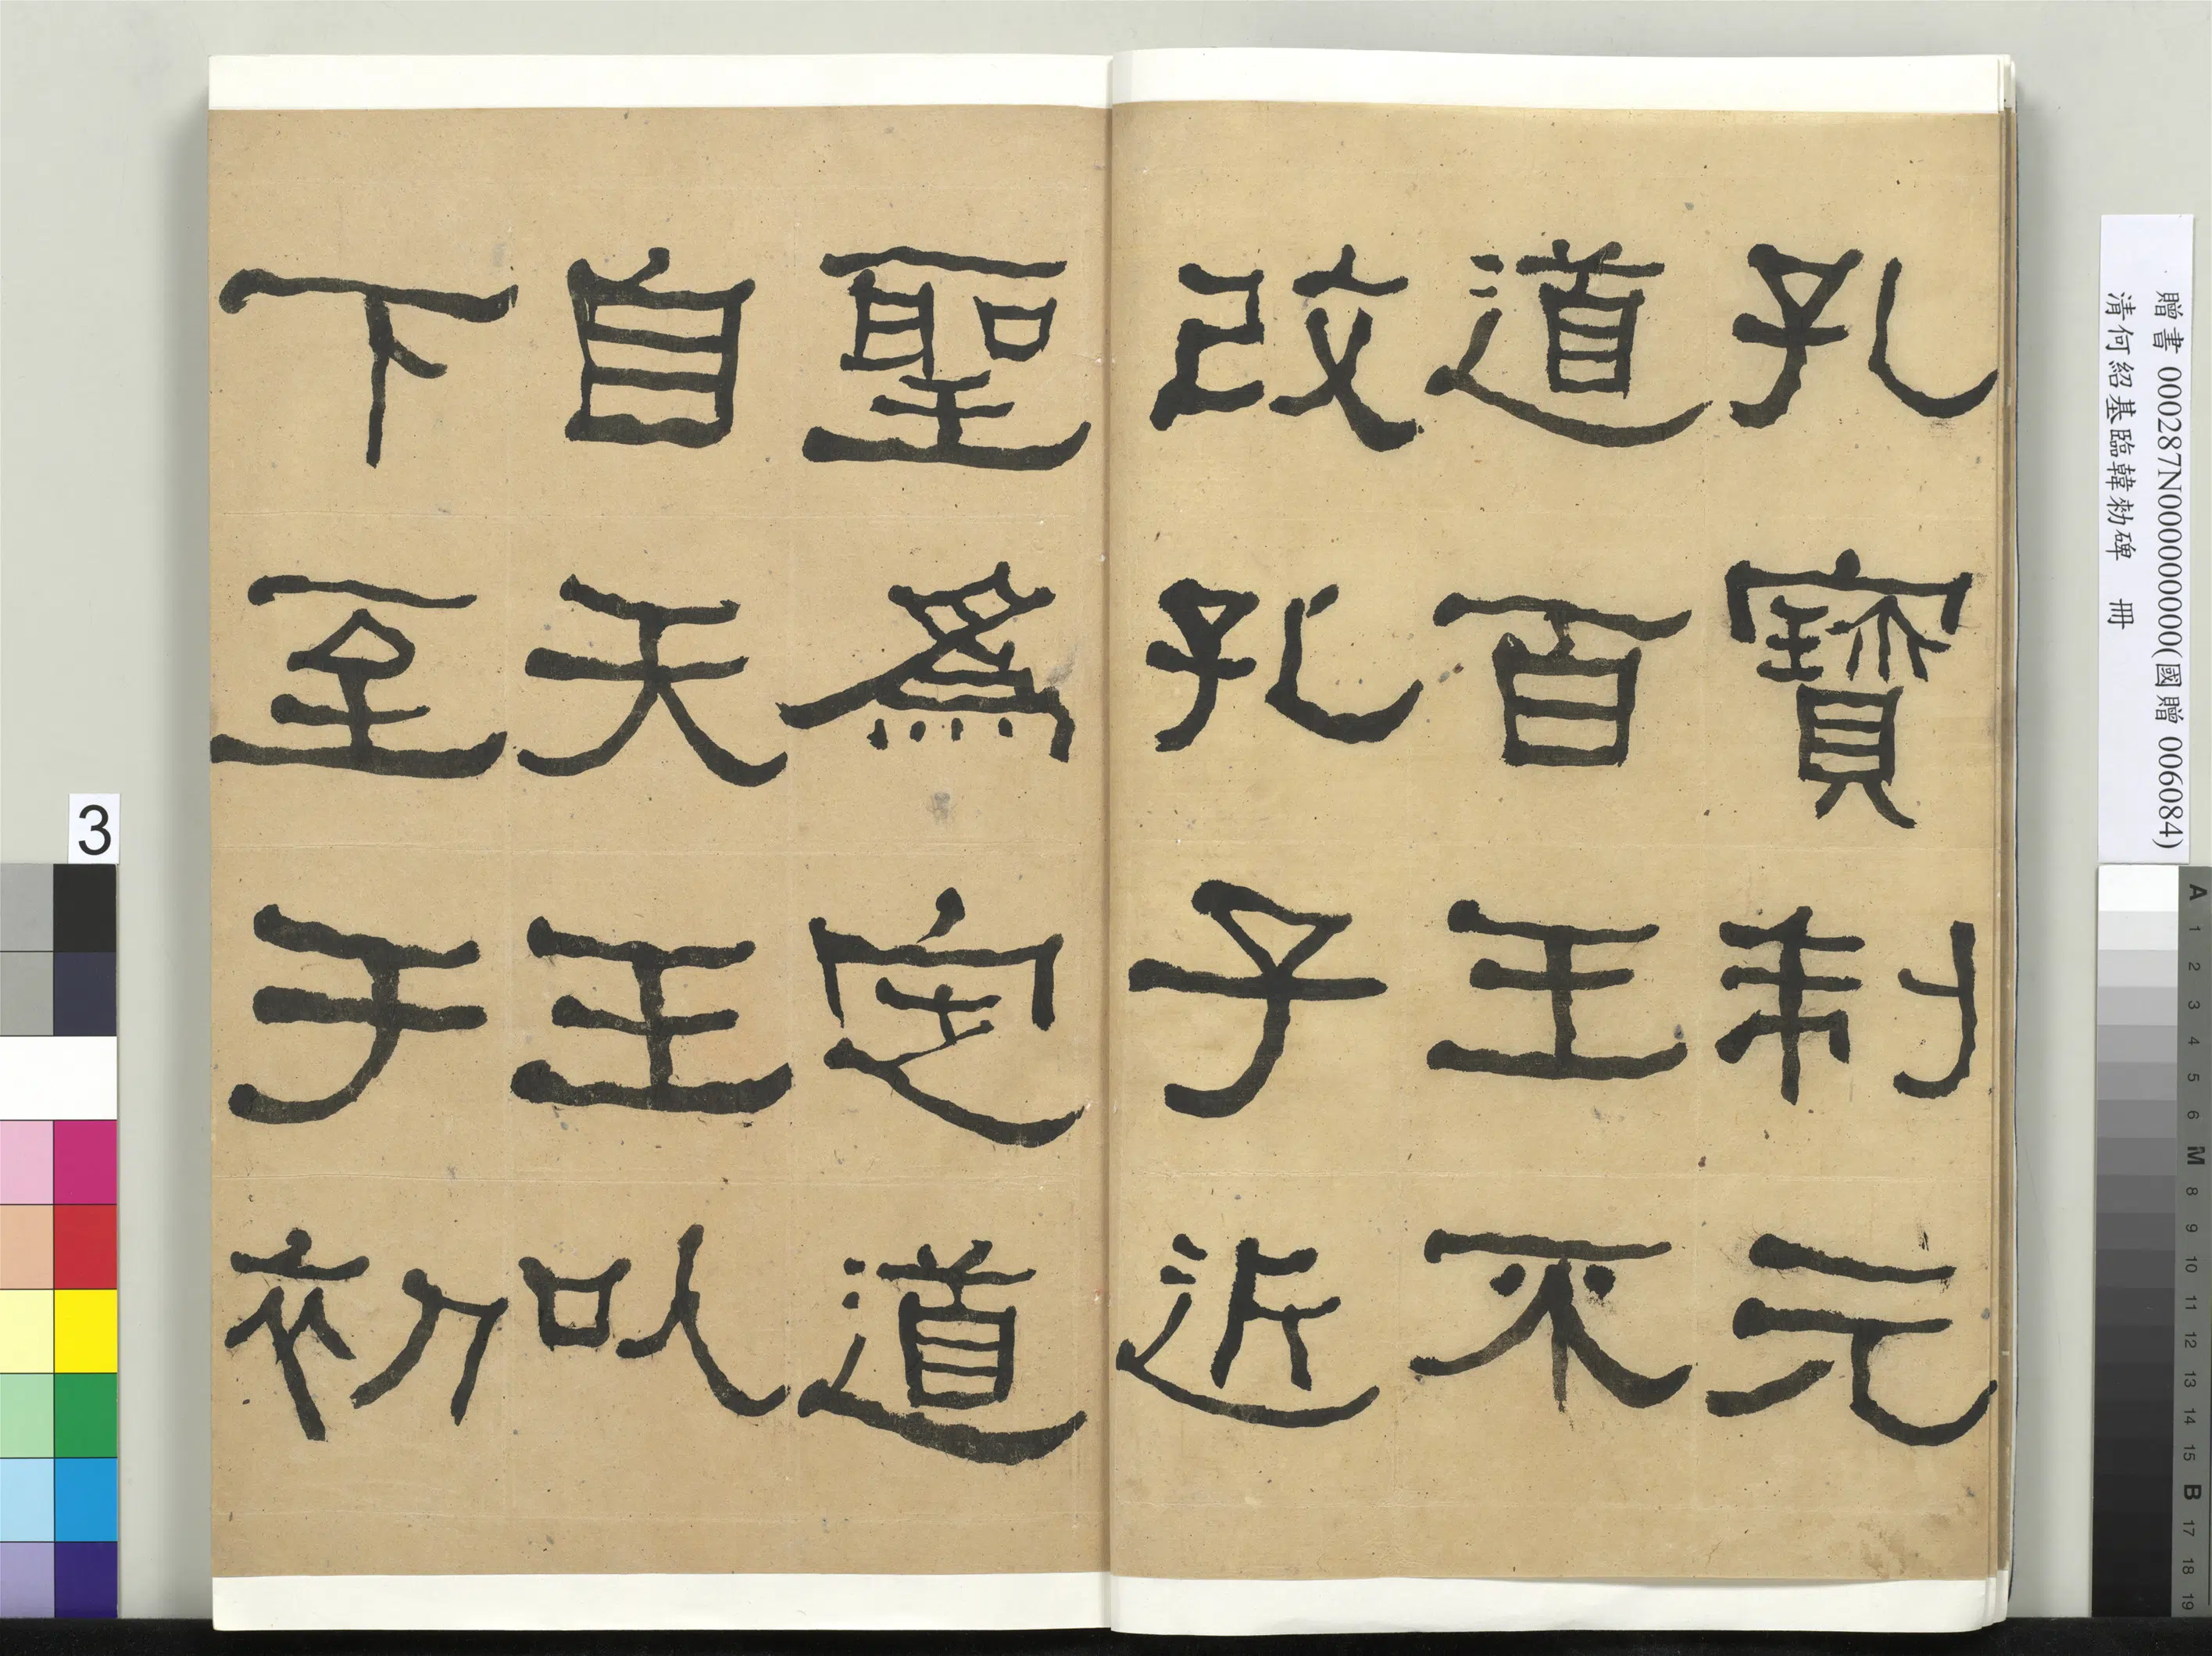 孔寶制元
道百王不
改孔子近
聖為定道
自天王以
下至于初
贈書 000287N000000000(國贈 006084)
清何紹基臨韓勑碑 冊
3
A 1 2 3 4 5 6 M 8 9 10 11 12 13 14 15 B 17 18 19